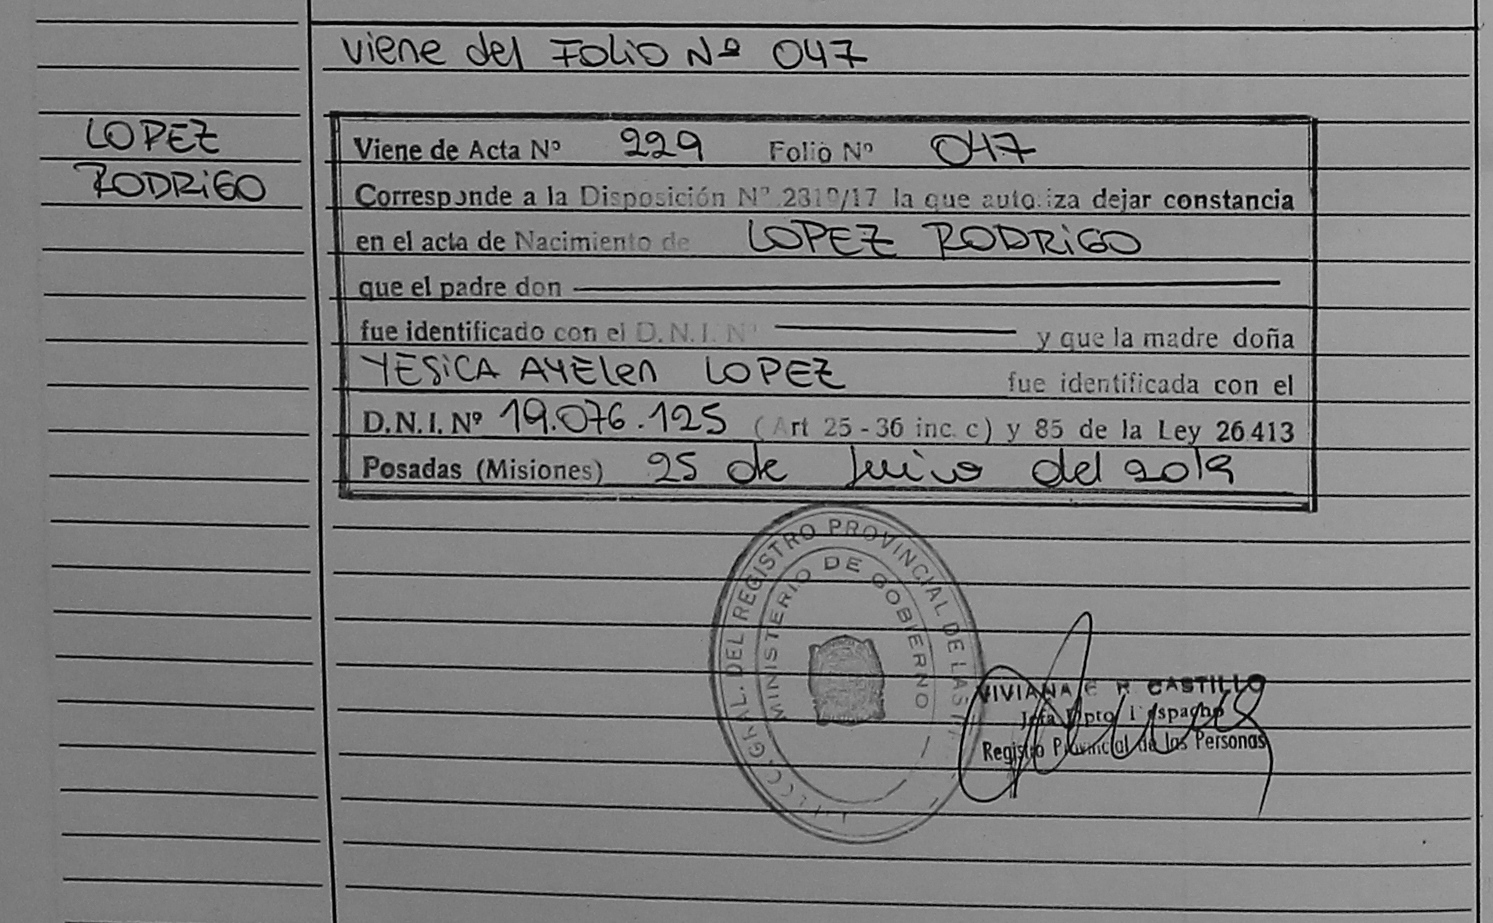 viene del FOLIO Nº 047
LOPEZ
RODRIGO
Viene de Acta Nº 229 Folio Nº 047
Corresponde a la Disposición Nº 2319/17 la que autoriza dejar constancia
en el acta de Nacimiento de LOPEZ RODRIGO
que el padre don
fue identificado con el D.N.I. Nº y que la madre doña
YESICA AYELEN LOPEZ fue identificada con el
D.N.I. Nº 19.076.125 (Art 25 - 36 inc. c) y 85 de la Ley 26.413
Posadas (Misiones) 25 de Junio del 2019
GRAL. DEL REGISTRO PROVINCIAL DE LAS
MINISTERIO DE GOBIERNO
VIVIANA E. R. CASTILLO
Jefa Dpto. Despacho
Registro Provincial de las Personas